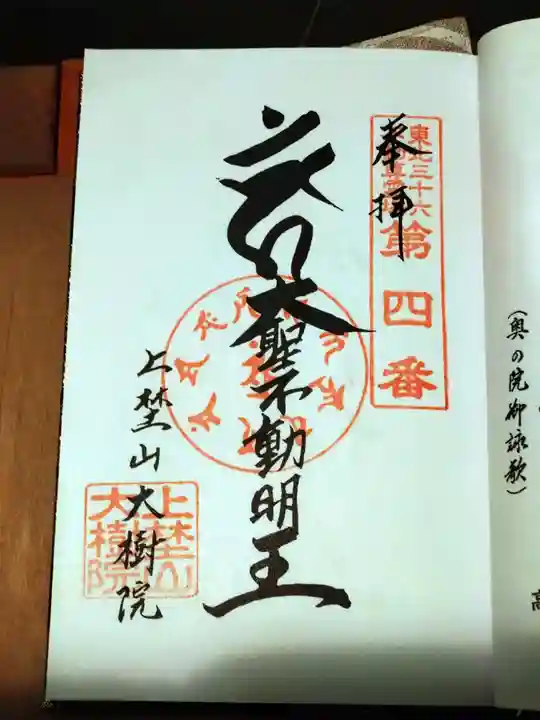 奉拝
東北三十六
不動尊霊場
第四番
大聖不動明王
上埜山大樹院
上埜山
大樹院
(奥の院御詠歌)
高